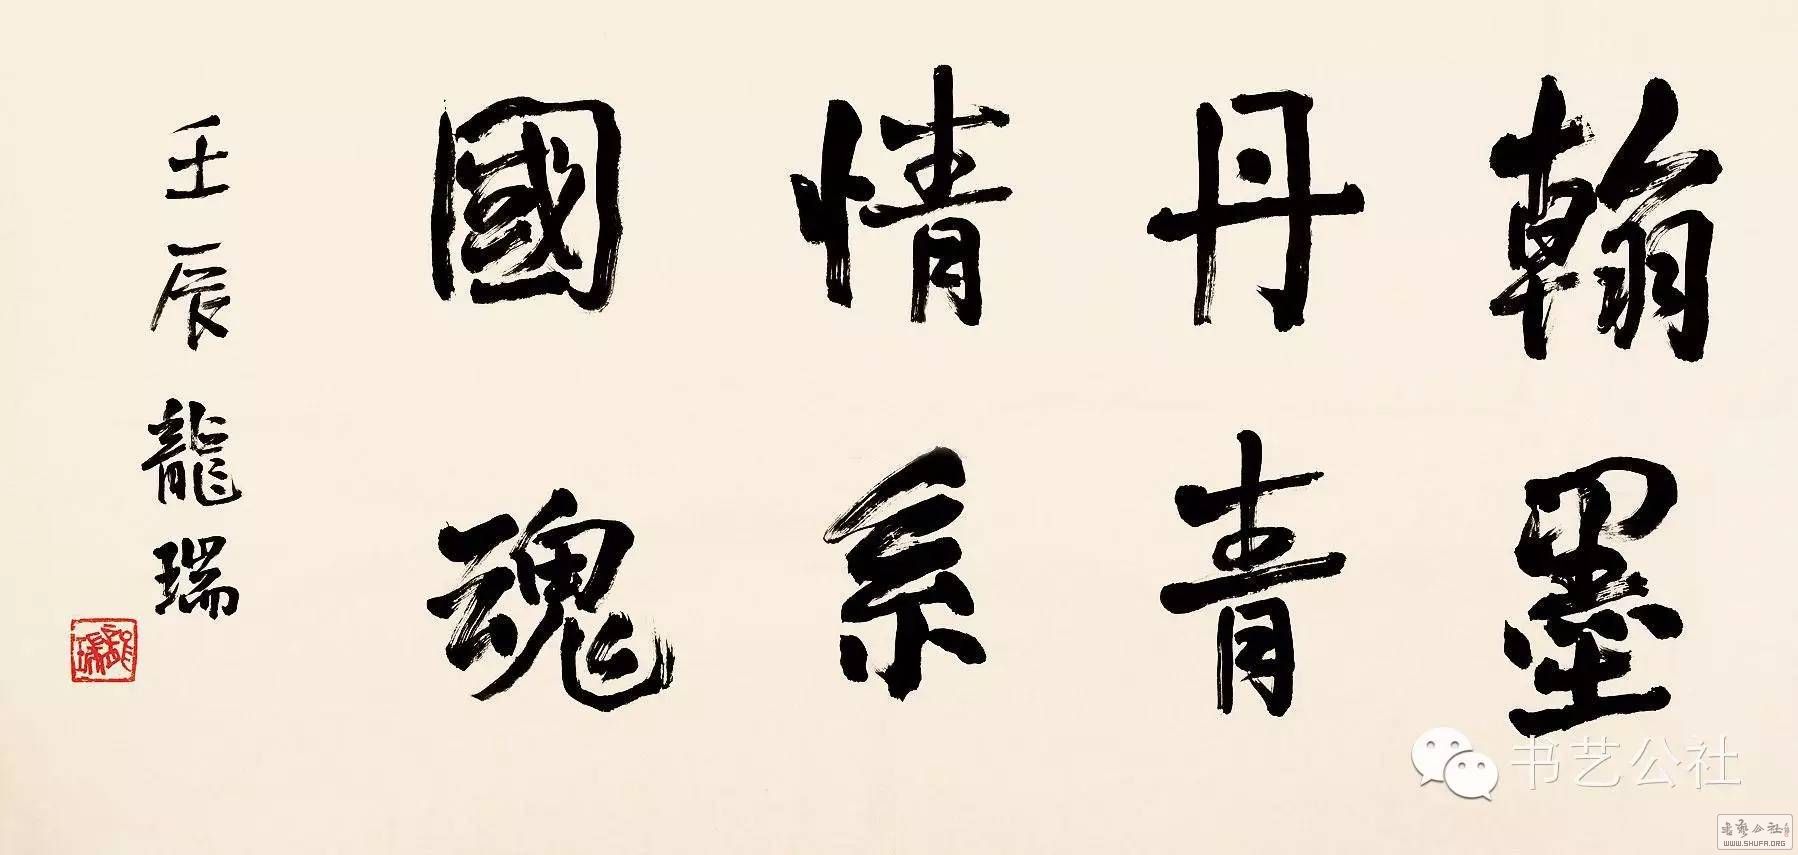 翰墨
丹青
情系
國魂
壬辰龍瑞
龍瑞
书艺公社
书艺公社
WWW.SHUFA.ORG